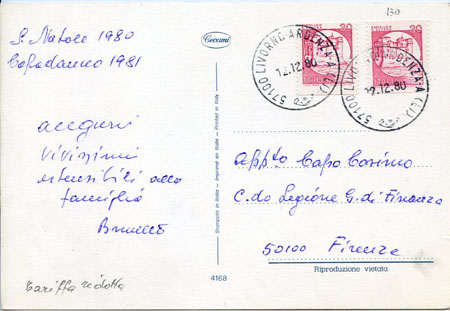 S. Natale 1980
Capodanno 1981
auguri
vivissimi
estensibili alla
famiglia
Cecami
130
57100 LIVORNO ARDENZA-A (LI)
12.12.80
57100 LIVORNO ARDENZA-A (LI)
12.12.80
30
30
App.to Capo Cosimo
C.do Legione G. di Finanza
50100 Firenze
Stampato in Italia - Imprimé en Italie - Printed in Italy
4168
Riproduzione vietata
tariffa ridotta